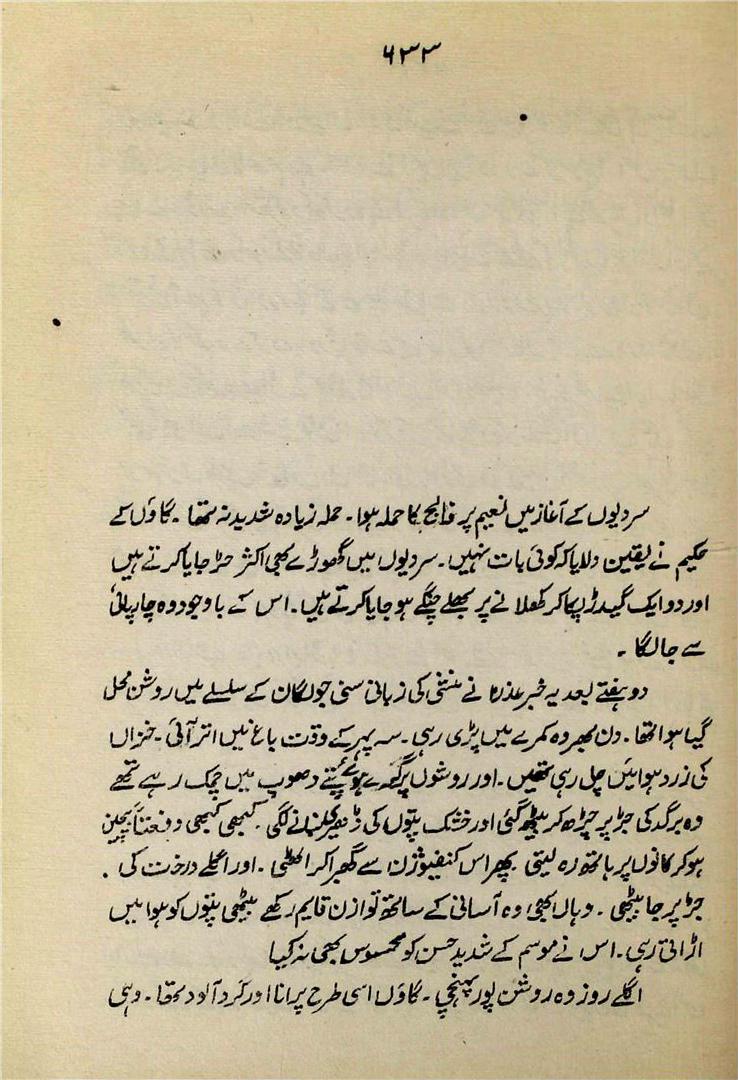 ۶۳۳
سردیوں کے آغاز میں نعیم پر فالج کا حملہ ہوا۔ حملہ زیادہ شدید نہ تھا۔ گاؤں کے
حکیم نے یقین دلایا کہ کوئی بات نہیں۔ سردیوں میں گھوڑے بھی اکثر جڑ جایا کرتے ہیں
اور دو ایک گیدڑ پکا کر کھلانے پر بھلے چنگے ہو جایا کرتے ہیں۔ اس کے باوجود وہ چارپائی
سے جا لگا۔
دو ہفتے بعد یہ خبر عذرا نے منشی کی زبانی سنی جو لگان کے سلسلے میں روشن محل
گیا ہوا تھا۔ دن بھر وہ کمرے میں پڑی رہی۔ سہ پہر کے وقت باغ میں اتر آئی۔ خزاں
کی زرد ہوائیں چل رہی تھیں۔ اور روشوں پر گرے ہوئے پتے دھوپ میں چمک رہے تھے
وہ برگد کی جڑ پر چڑھ کر بیٹھ گئی اور خشک پتوں کی ڈھیر لگانے لگی۔ کبھی کبھی دفعتاً بےچین
ہو کر کانوں پر ہاتھ رہ لیتی۔ پھر اس کنفیوژن سے گھبرا کر اٹھی۔ اور اگلے درخت کی
جڑ پر جا بیٹھی۔ وہاں بھی وہ آسانی کے ساتھ توازن قایم رکھے بیٹھی پتوں کو ہوا میں
اڑاتی رہی۔ اس نے موسم کے شدید حسن کو محسوس بھی نہ کیا
اگلے روز وہ روشن پور پہنچی۔ گاؤں اسی طرح پرانا اور گرد آلود تھا۔ وہی